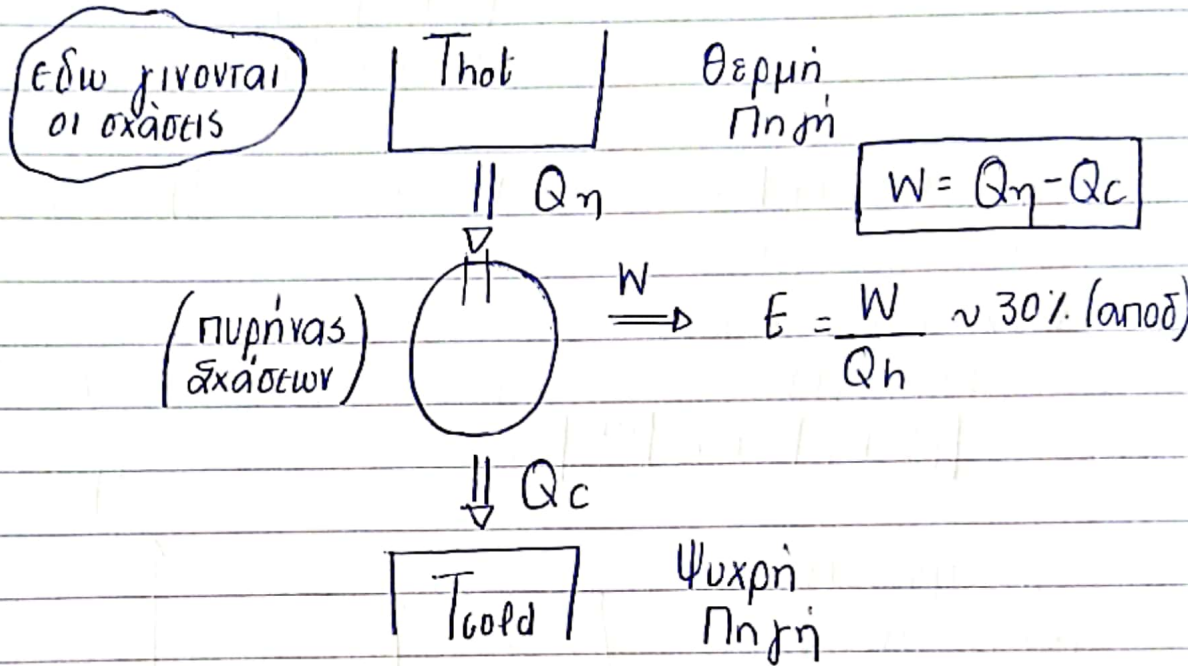 εδω γινονται
οι σχάσεις
Thot
Θερμή
Πηγή
Qη
W = Qη - Qc
(πυρήνας
σχάσεων)
W
E = W / Qh ~ 30% (αποδ)
Qc
Tcold
Ψυχρή
Πηγή